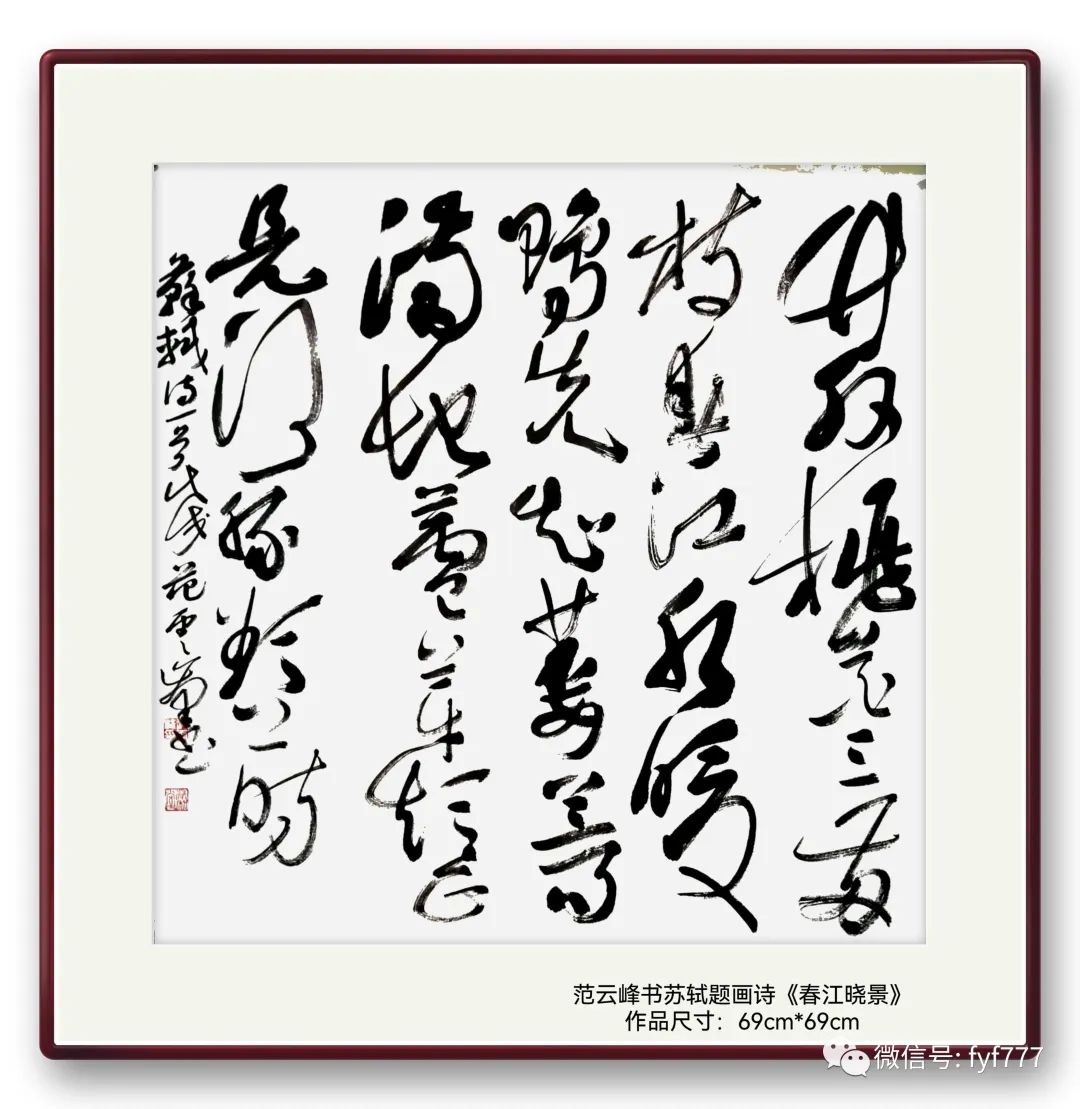 竹外桃花三两
枝春江水暖
鴨先知蒌蒿
满地蘆芽短正
是河豚欲上时
蘇軾诗一首戊戌范雲峰书
范云峰书苏轼题画诗《春江晓景》
作品尺寸：69cm*69cm
微信号: fyf777